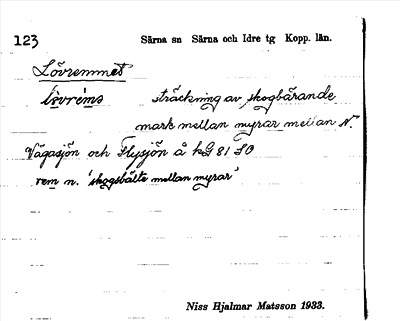 123 Särna sn Särna och Idre tg Kopp. län.
Lövremmet
lʉvrèms sträckning av skogbärande
mark mellan myrar mellan N.
Vågasjön och Flysjön å kG 81 SO
rem n. 'skogsbälte mellan myrar'
Niss Hjalmar Matsson 1933.